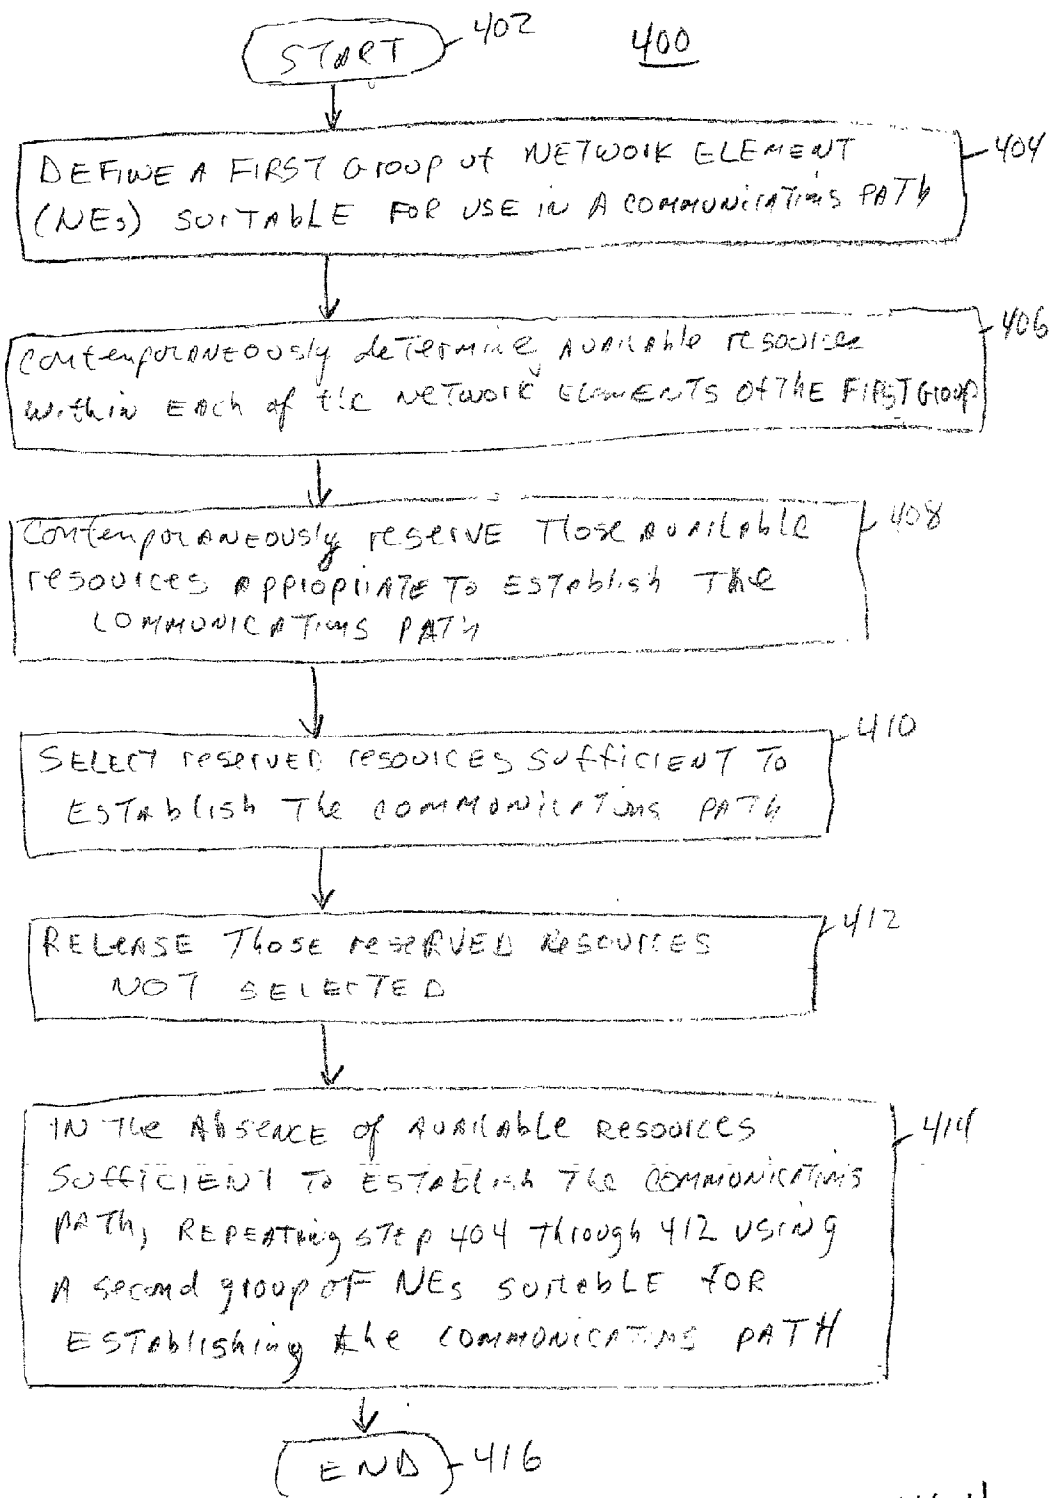 START
402
400
DEFINE A FIRST Group of NETWORK ELEMENT
(NEs) SUITABLE FOR USE in A COMMUNICATIONS PATh
404
Contemporaneously determine Available resources
within Each of the NETWORK ELEMENTS Of THE FIRST Group
406
Contemporaneously reserve Those Available
resources appropriate To Establish The
COMMUNICATIONS PATh
408
SELECT reserved resources Sufficient To
Establish The communications PATh
410
RELEASE Those reserved Resources
NOT SELECTED
412
IN The Absence of Available Resources
SUFFICIENT To ESTAblish The COMMUNICATIONS
PATh, REPEATing STEP 404 Through 412 using
A second group of NEs suitable FOR
ESTAblishing the COMMUNICATIONS PATH
414
END
416